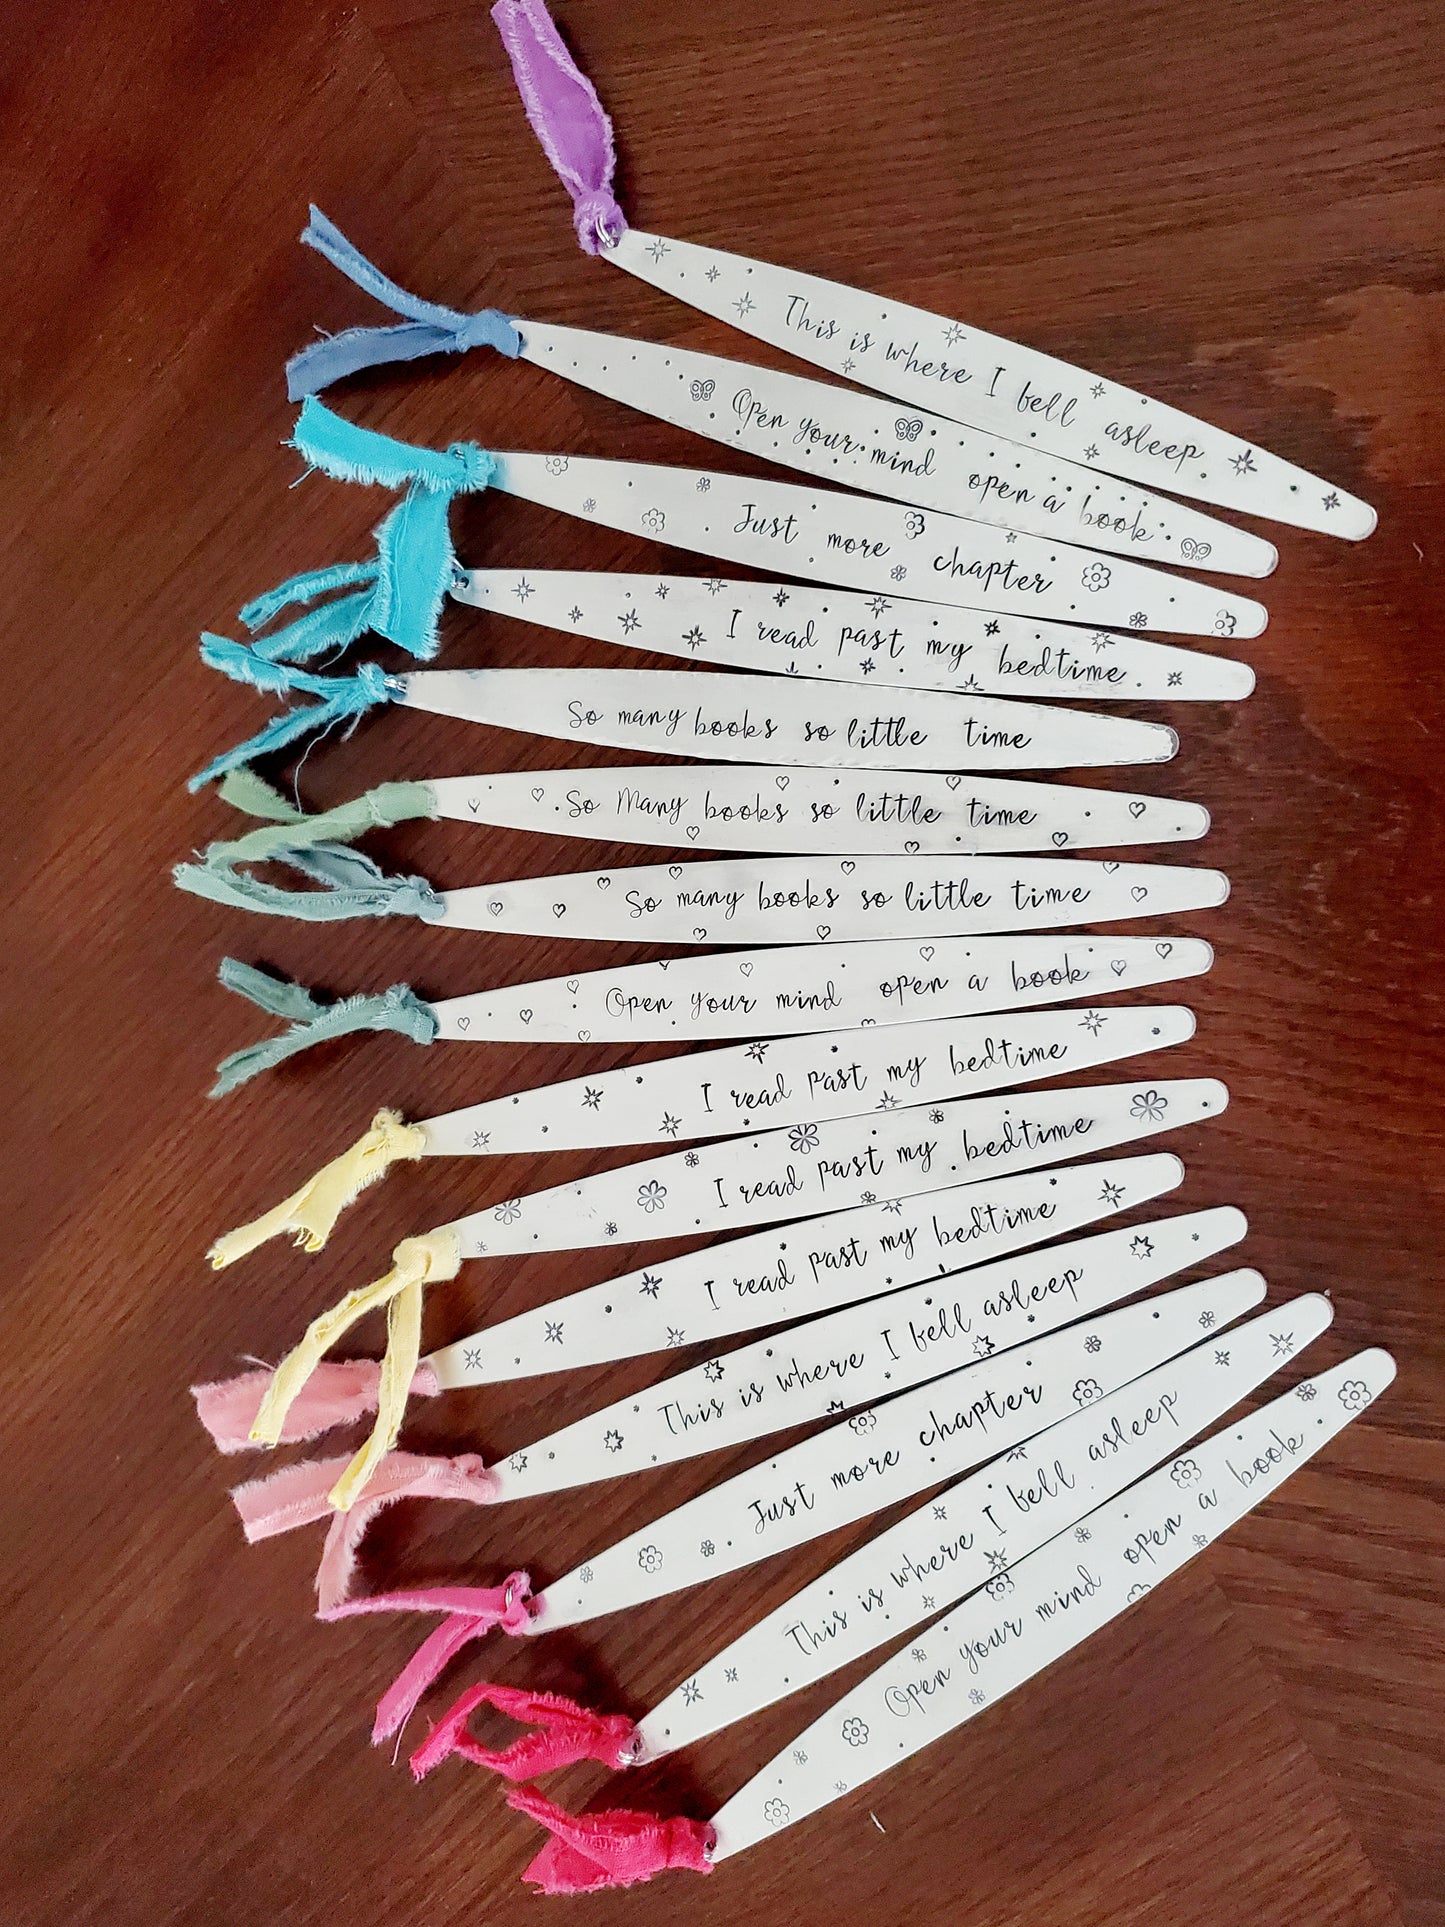 This is where I fell asleep
Open your mind open a book
Just more chapter
I read past my bedtime
So many books so little time
So Many books so little time
So many books so little time
Open your mind open a book
I read past my bedtime
I read past my bedtime
I read past my bedtime
This is where I fell asleep
Just more chapter
This is where I fell asleep
Open your mind open a book